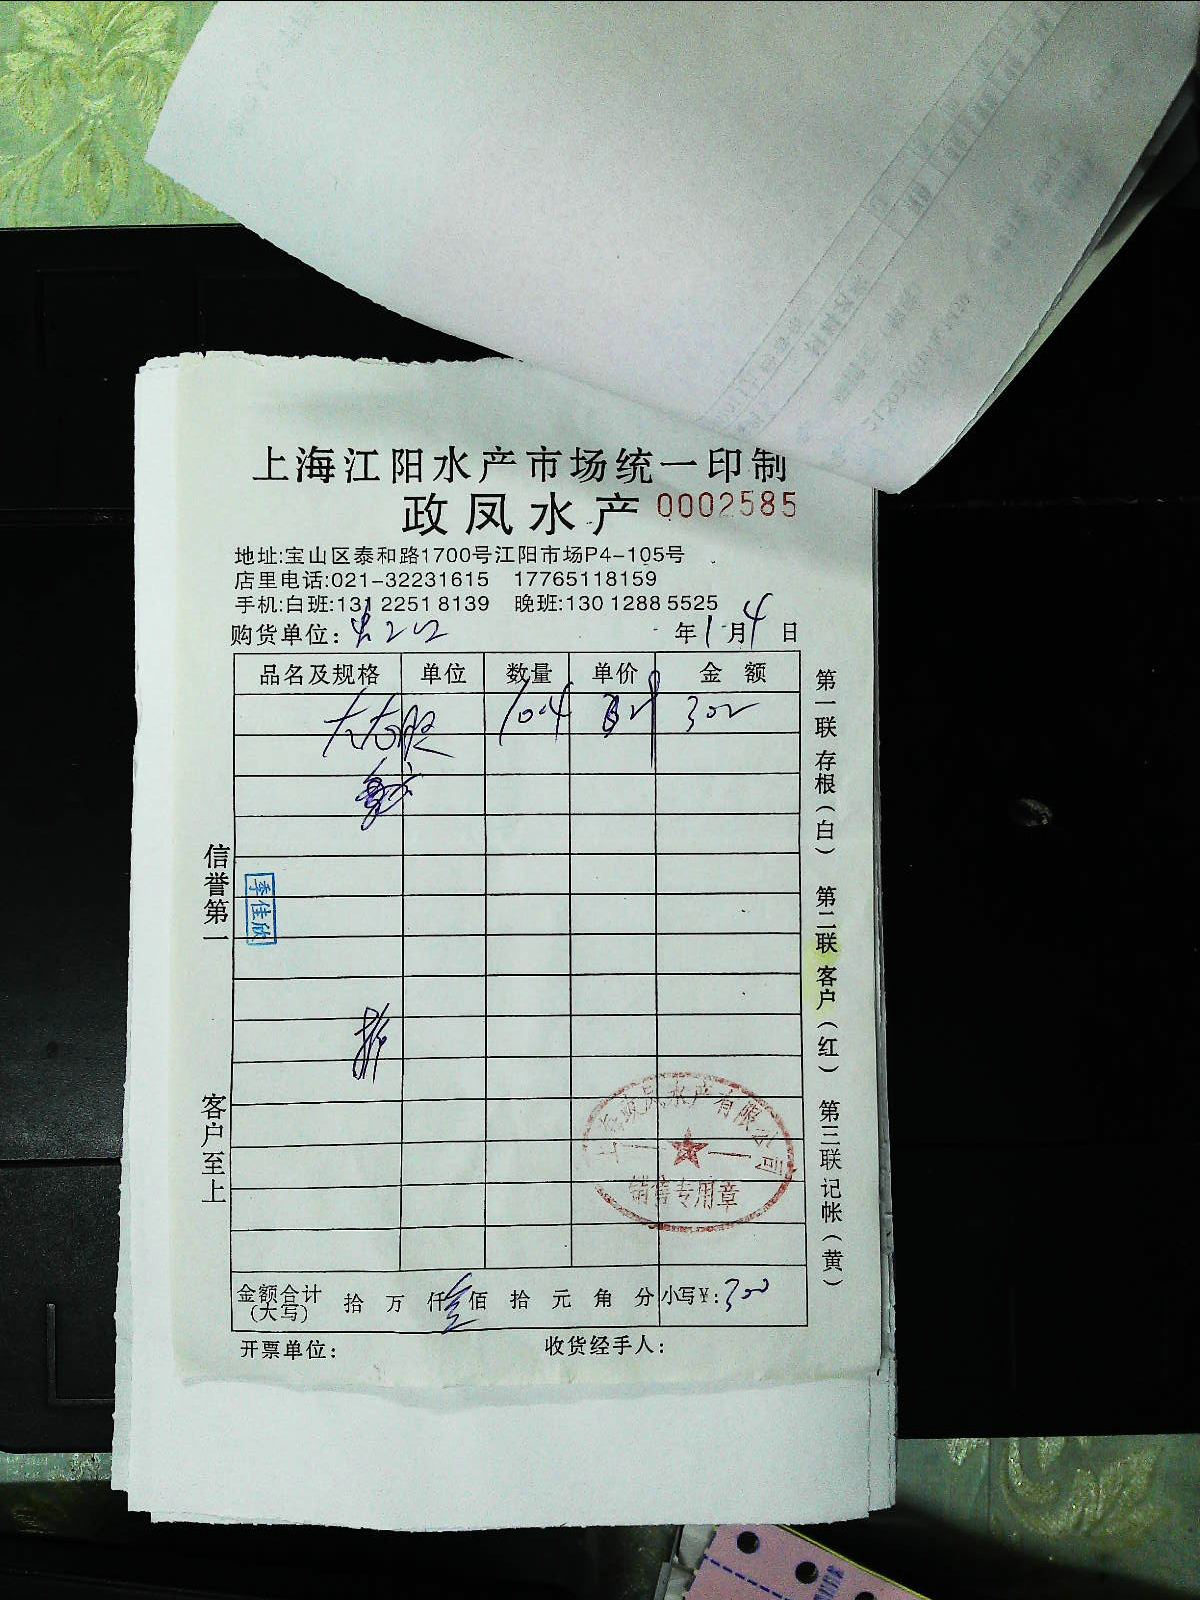 上海江阳水产市场统一印制
政凤水产 0002585
地址:宝山区泰和路1700号江阳市场P4-105号
店里电话:021-32231615 17765118159
手机:白班:131 2251 8139 晚班:130 1288 5525
购货单位: 年1月4日
品名及规格 单位 数量 单价 金额
10.4 302
信誉第一
客户至上
季佳欣
第一联存根(白) 第二联客户(红) 第三联记帐(黄)
上海政凤水产有限公司
销售专用章
金额合计(大写) 拾 万 仟 佰 拾 元 角 分 小写¥:300
开票单位: 收货经手人: